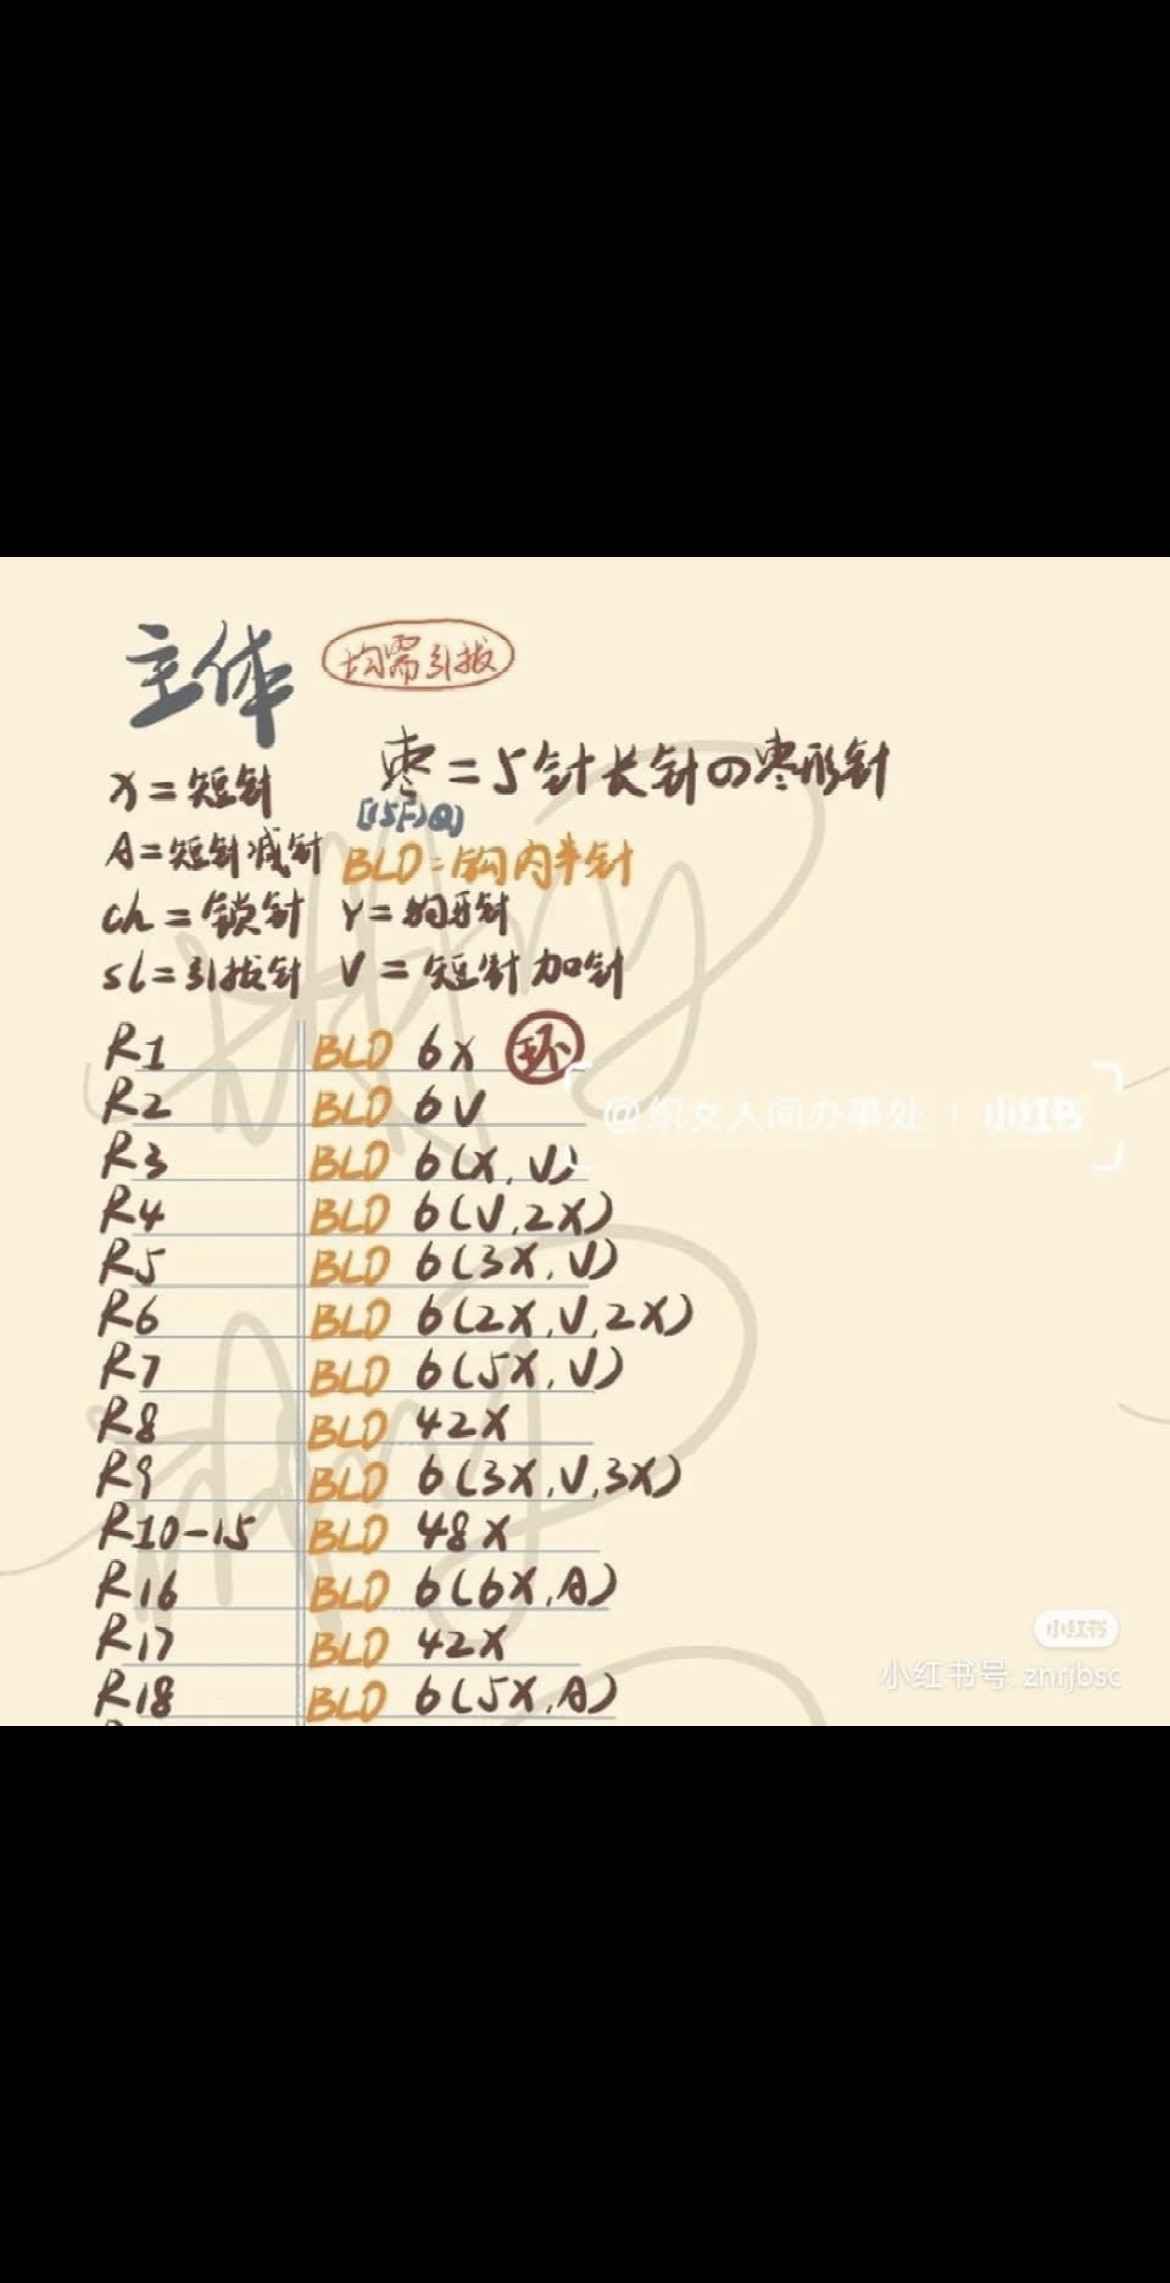 主体 均需引拔
枣=5针长针の枣形针
X=短针
[(5F)Q]
A=短针减针 BLO=钩内半针
ch=锁针 Y=狗牙针
sl=引拔针 V=短针加针
R1 BLO 6X 环
R2 BLO 6V
@织女人间办事处 | 小红书
R3 BLO 6(X,V)
R4 BLO 6(V,2X)
R5 BLO 6(3X,V)
R6 BLO 6(2X,V,2X)
R7 BLO 6(5X,V)
R8 BLO 42X
R9 BLO 6(3X,V,3X)
R10-15 BLO 48X
R16 BLO 6(6X,A)
小红书
R17 BLO 42X
小红书号: znrjbsc
R18 BLO 6(5X,A)